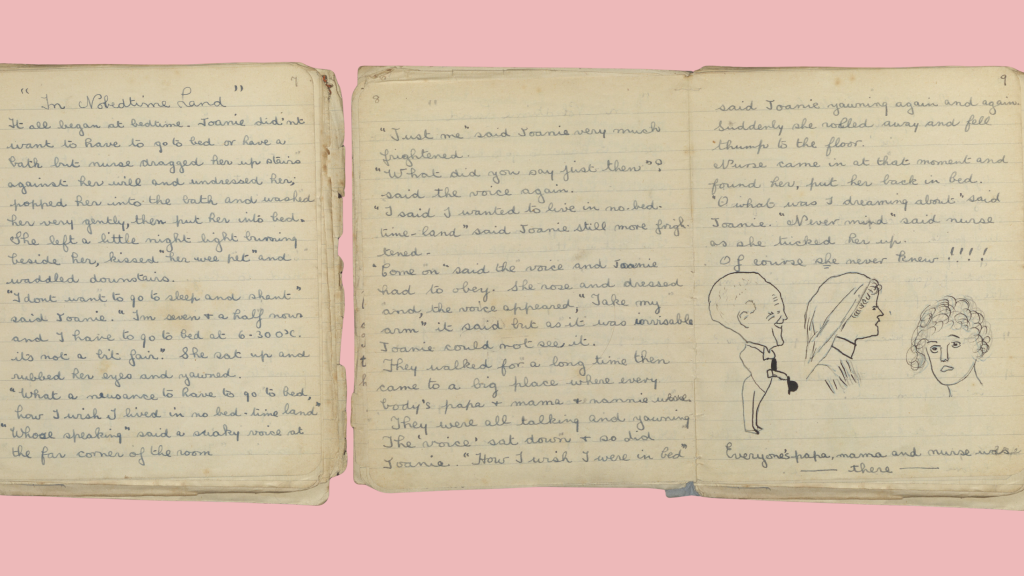 7
"In Nobedtime Land"
It all began at bedtime. Joanie did'nt
want to have to go to bed or have a
bath but nurse dragged her up stairs
against her will and undressed her,
popped her into the bath and washed
her very gently, then put her into bed.
She left a little night light burning
beside her, kissed "her wee pet" and
waddled downstairs.
"I dont want to go to sleep and shant"
said Joanie. "I'm seven & a half now
and I have to go to bed at 6.30 o'c.
its not a bit fair." She sat up and
rubbed her eyes and yawned.
"What a neusance to have to go to bed,
how I wish I lived in no bed-time land"
"Whose speaking" said a sqaky voice at
the far corner of the room
8
"Just me" said Joanie very much
frightened.
"What did you say just then"?
said the voice again.
"I said I wanted to live in no-bed-
time-land" said Joanie still more frigh-
tened.
"Come on" said the voice and Joanie
had to obey. She rose and dressed
and, the voice appeared," Take my
arm" it said but as it was invisable
Joanie could not see it.
They walked for a long time then
came to a big place where every
body's papa & mama & nannie where.
They were all talking and yawning
The 'voice' sat down & so did
Joanie. "How I wish I were in bed"
9
said Joanie yawning again and again
Suddenly she rolled away and fell
thump to the floor.
Nurse came in at that moment and
found her, put her back in bed.
"O what was I dreaming about" said
Joanie. "Never mind" said nurse
as she tucked her up.
Of course she never knew !!!!
Everyone's papa, mama and nurse was
there